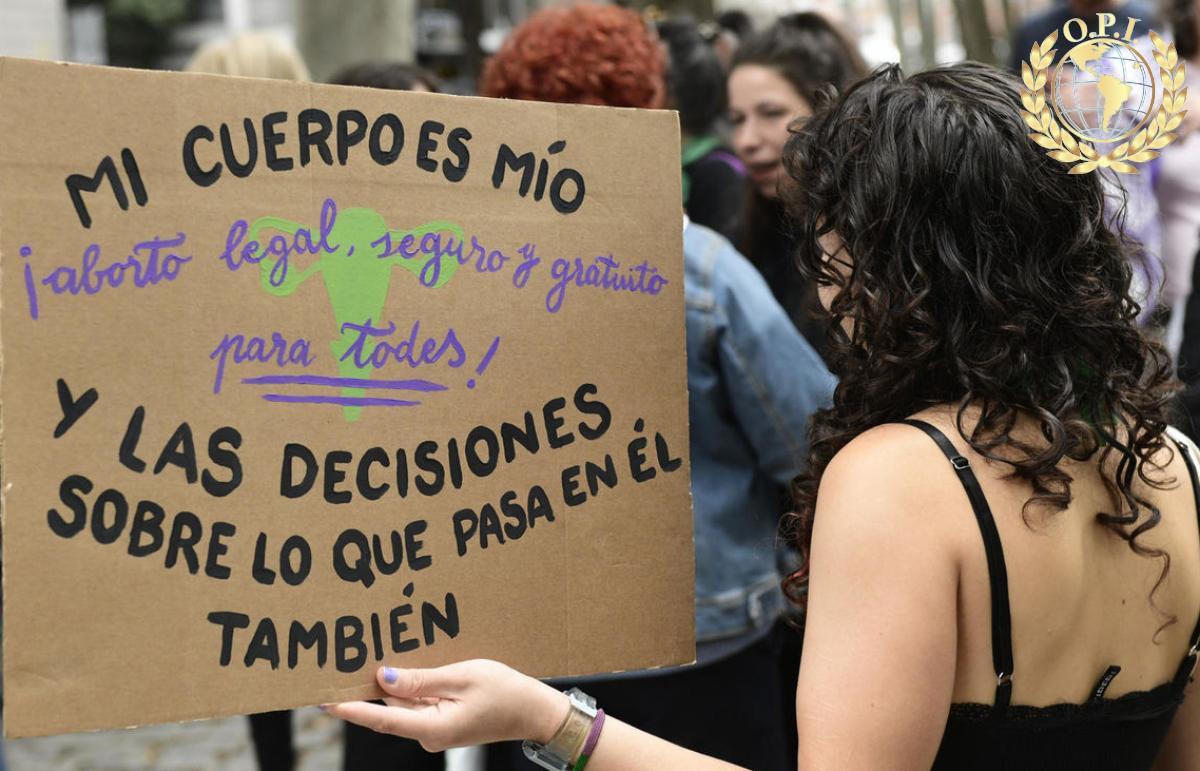 O.P.I
MI CUERPO ES MÍO
¡aborto legal, seguro y gratuito
para todes!
Y LAS DECISIONES
SOBRE LO QUE PASA EN ÉL
TAMBIÉN